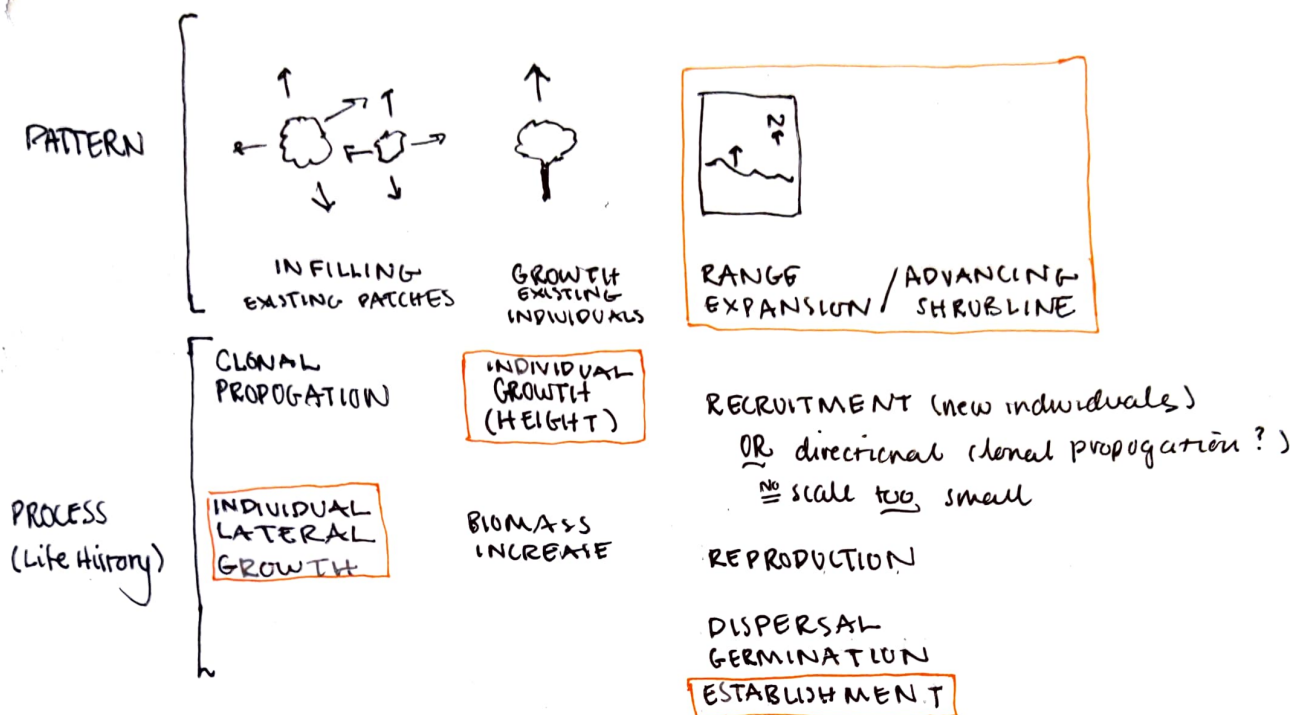 PATTERN
INFILLING
EXISTING PATCHES
GROWTH
EXISTING
INDIVIDUALS
RANGE
EXPANSION /
ADVANCING
SHRUBLINE
PROCESS
(Life History)
CLONAL
PROPOGATION
INDIVIDUAL
LATERAL
GROWTH
INDIVIDUAL
GROWTH
(HEIGHT)
BIOMASS
INCREASE
RECRUITMENT (new individuals)
OR directional clonal propogation?)
No scale too small
REPRODUCTION
DISPERSAL
GERMINATION
ESTABLISHMENT